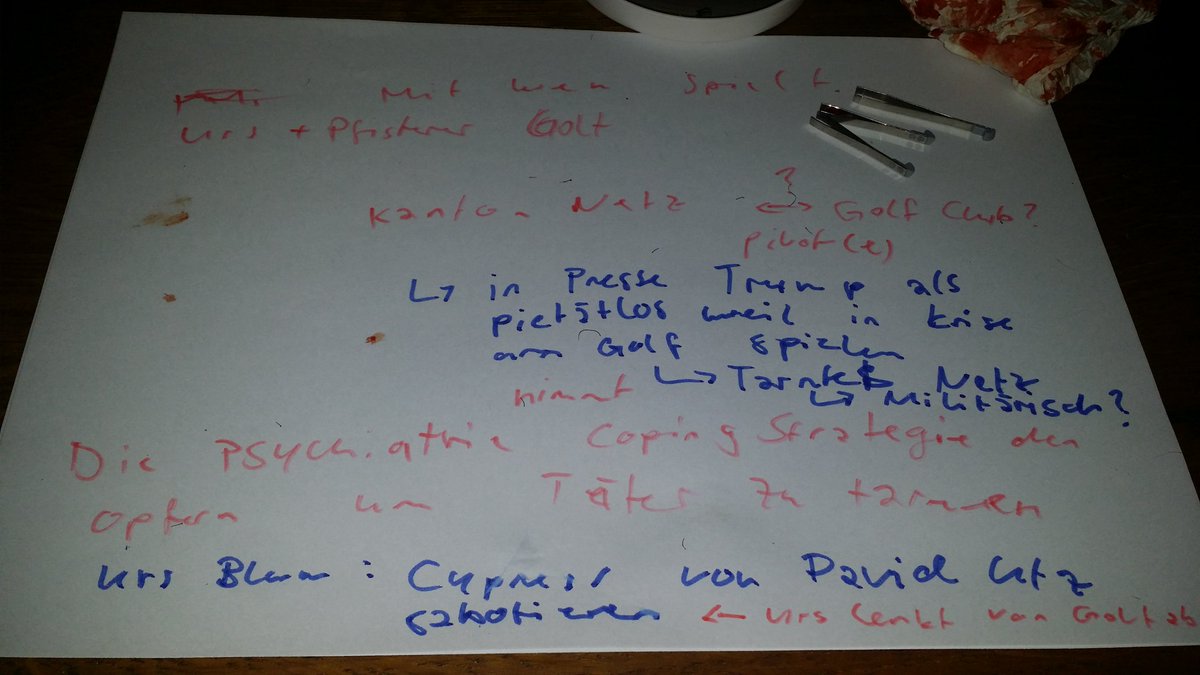 Mit wem spielt
Urs + Pfisterer Golf
Kanton Netz ? ↔ Golf Club?
pilot(e)
↳ in Presse Trump als
pietätlos weil in Krise
am Golf spielen
↳ Netz
nimmt ↳ Militärisch?
Die PSYchiathrie Coping Strategie den
opfern um Täter zu tarnen
Urs Blum: Cypress von David Utz
sabotieren ← Urs lenkt von Golf ab